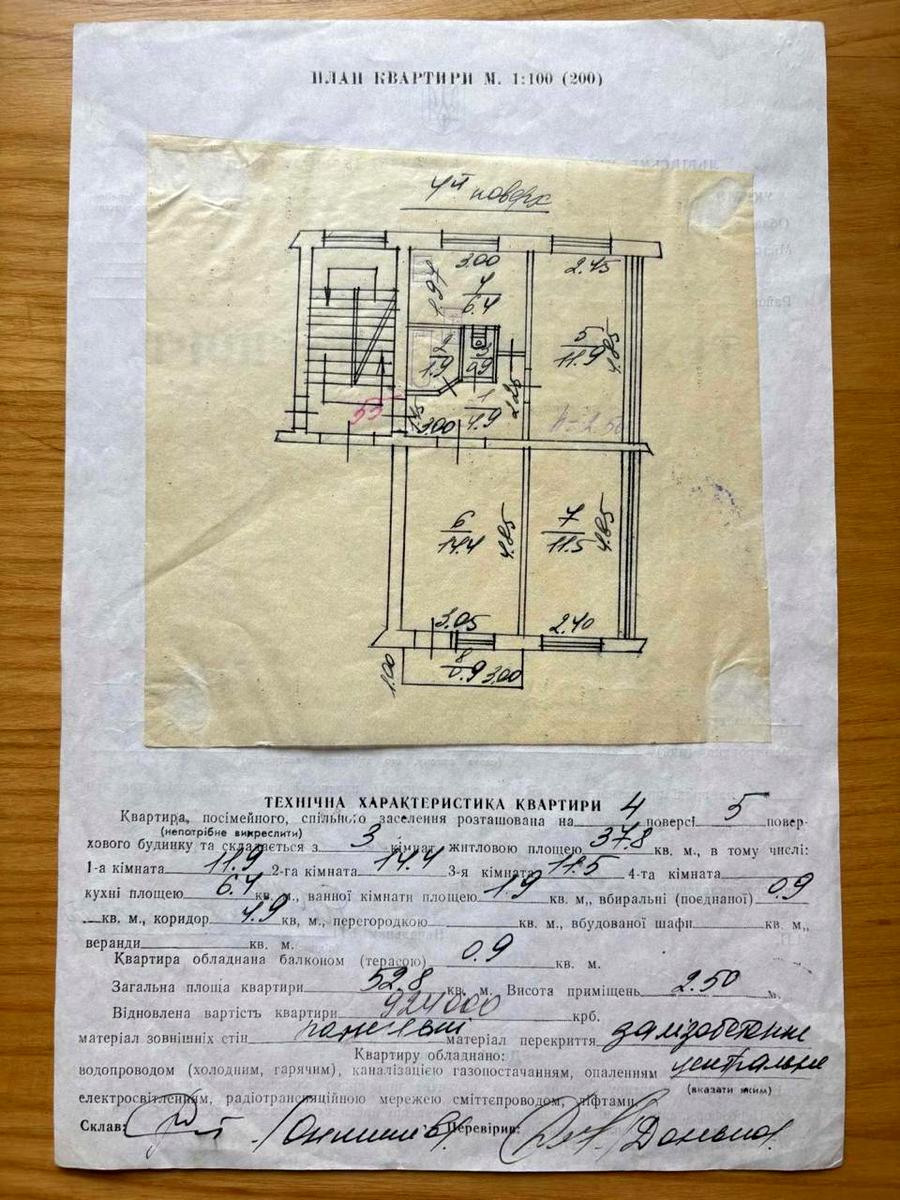 ПЛАН КВАРТИРИ М. 1:100 (200)
4й поверх
3.00
2.45
2.97
4
6.4
5
11.9
4.85
2
1.9
3
0.9
2.25
55
1
4.9
3.00
h=2.50
6
14.4
4.85
7
11.5
4.85
3.05
2.40
1.00
8
0.9
3.00
ТЕХНІЧНА ХАРАКТЕРИСТИКА КВАРТИРИ
Квартира, посімейного, спільного заселення розташована на 4 поверсі 5 повер-
(непотрібне викреслити)
хового будинку та складається з 3 кімнат житловою площею 37.8 кв. м., в тому числі:
1-а кімната 11.9 2-га кімната 14.4 3-я кімната 11.5 4-та кімната
кухні площею 6.4 кв. м., ванної кімнати площею 1.9 кв. м,, вбиральні (поєднаної) 0.9
кв. м., коридор 4.9 кв, м., перегородкою кв. м., вбудованої шафи кв. м.,
веранди кв. м.
Квартира обладнана балконом (терасою) 0.9 кв. м.
Загальна площа квартири 52.8 кв. м. Висота приміщень 2.50 м.
Відновлена вартість квартири 924000 крб.
матеріал зовнішніх стін панельні матеріал перекриття залізобетонне
Квартиру обладнано:
водопроводом (холодним, гарячим), каналізацією газопостачанням, опаленням центральне
(вказати яким)
електросвітленням, радіотрансляційною мережею сміттєпроводом, ліфтами.
Склав: Перевірив: